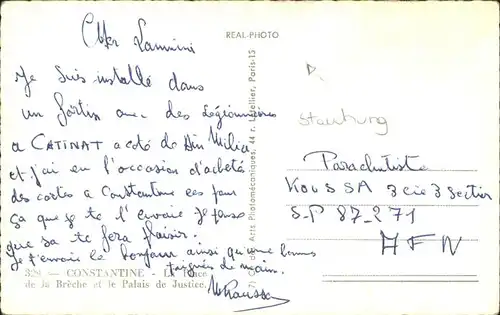 Cher
REAL-PHOTO
Je suis installé dans
un fortin avec des Légionnaires
a CATINAT a coté de Ain Milia
et j'ai eu l'occasion d'acheté
des cartes a Constantine
ça que je te l'envoie Je pense
que sa te fera plaisir.
Je t'envoie le bonjour ainsi qu'une bonne
poignée de main.
328 — CONSTANTINE - La Place
de la Brèche et le Palais de Justice.
Arts Photomécaniques, 44 r. Letellier, Paris-15
Parachutiste
KOUSSA 3 cie 3 section
S-P 87-271
AFN